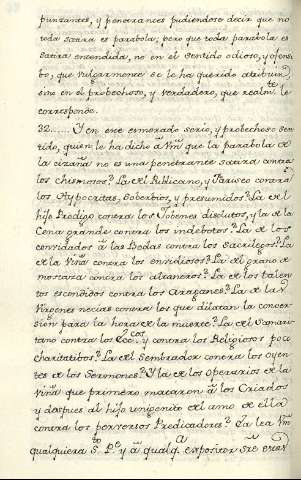 punzantes, y penetrantes pudiendose decir que no
toda satira es parabola, pero que toda parabola es
satira entendida, no en el sentido odioso, y ofensi-
bo, que vulgarmente se le ha querido atribuir,
sino en el probechoso, y verdadero, que realmte. le
corresponde.
32...... Y en ese esmerado serio, y probechoso sen
tido, quien le ha dicho á Vm que la parabola de
la cizaña no es una penetrante satira contra
los chismosos? La del Publicano, y Fariseo contra
los Hypocritas, soberbios, y presumidos? La del
hijo Prodigo contra los Jobenes disolutos, y la de la
Cena grande contra los indebotos? La de los
convidados á las Bodas contra los sacrilegos? La
de la Viña contra los envidiosos? La del grano de
mostaza contra los altaneros? La de los talen
tos escondidos contra los araganes? La de las
Virgenes necias contra los que dilatan la conver
sion para la hora de la muerte? La del Samari
tano contra los Eccos. y contra los Religiosos poco
charitatibos? La del Sembrador contra los oyen
tes de los Sermones? Y la de los operarios de la
viña que primero mataron á los Criados
y despues al hijo unigenito del amo de ella
contra los perversos Predicadores? Ea lea Vm
qualquiera Sto. Pe. y á qualqa. expositor sre. estas